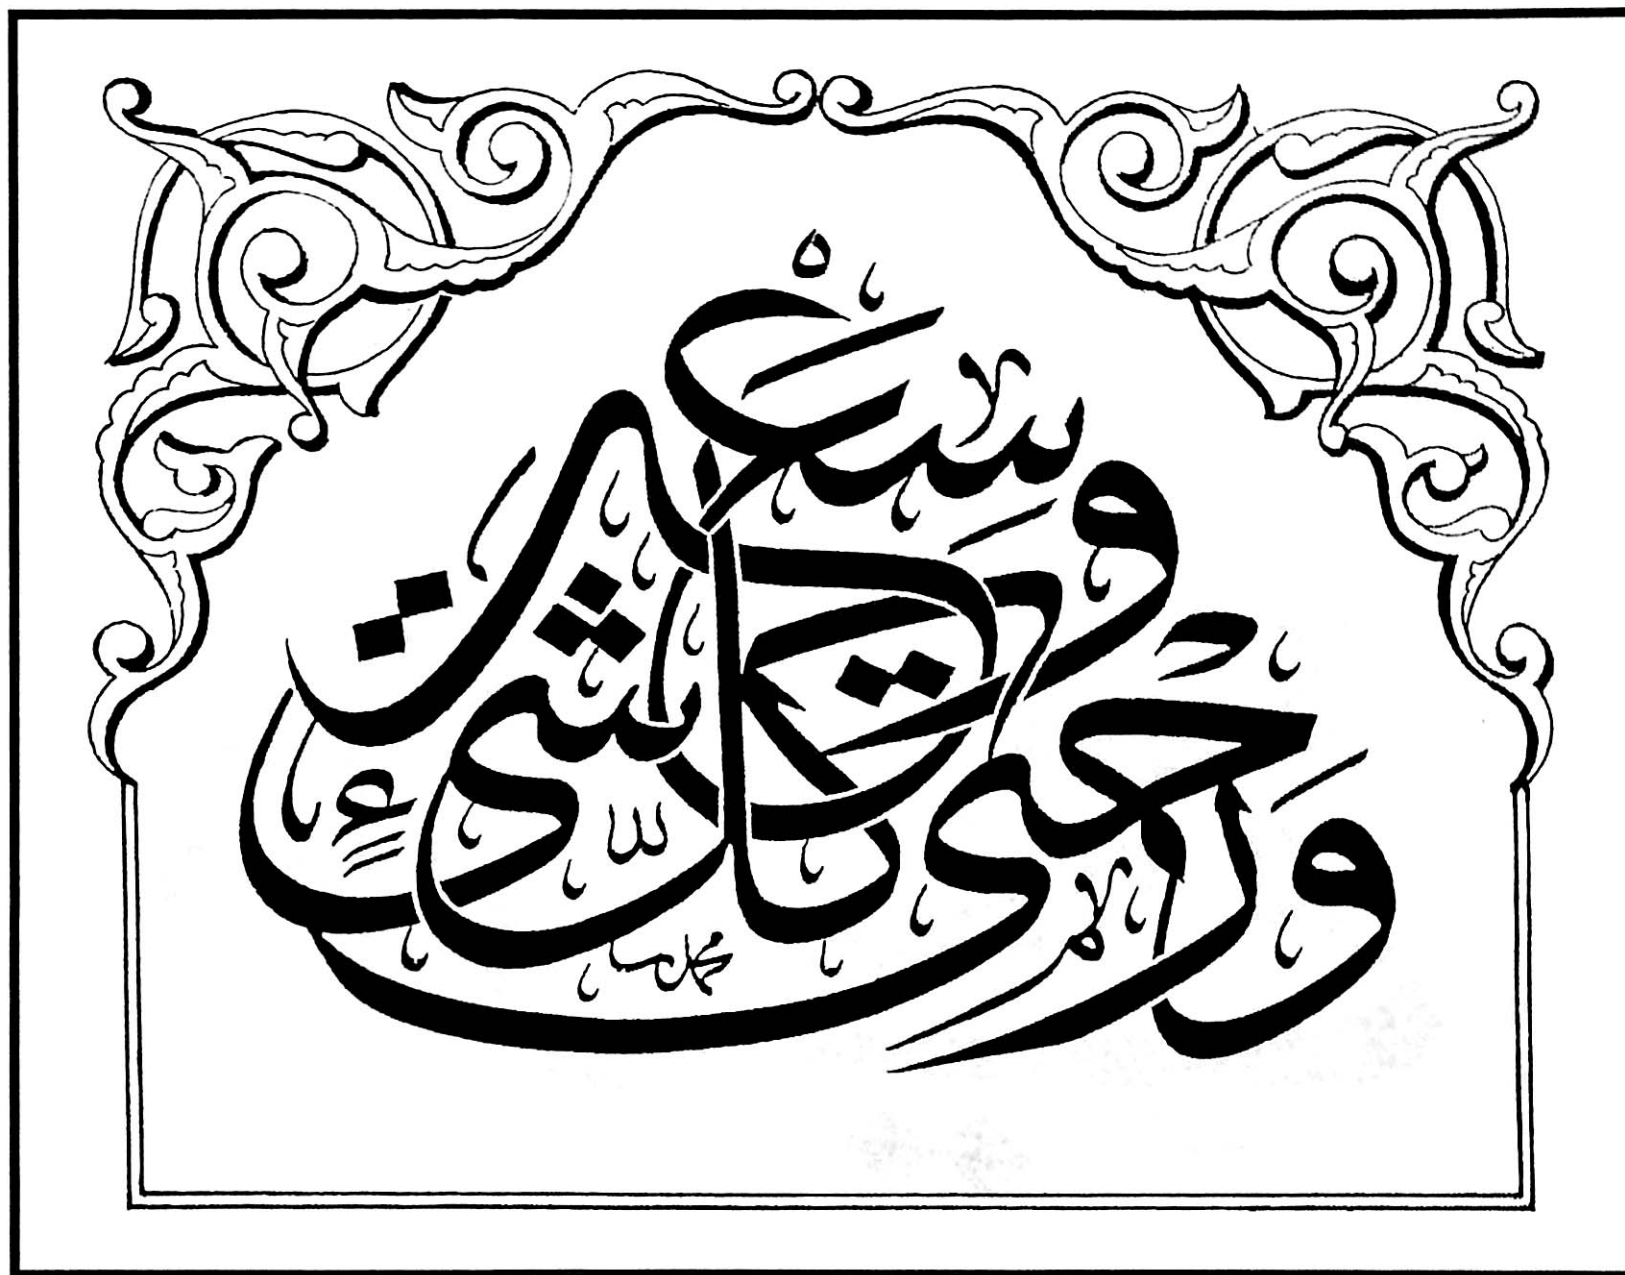 وَرَحْمَتِي وَسِعَتْ كُلَّ شَيْءٍ